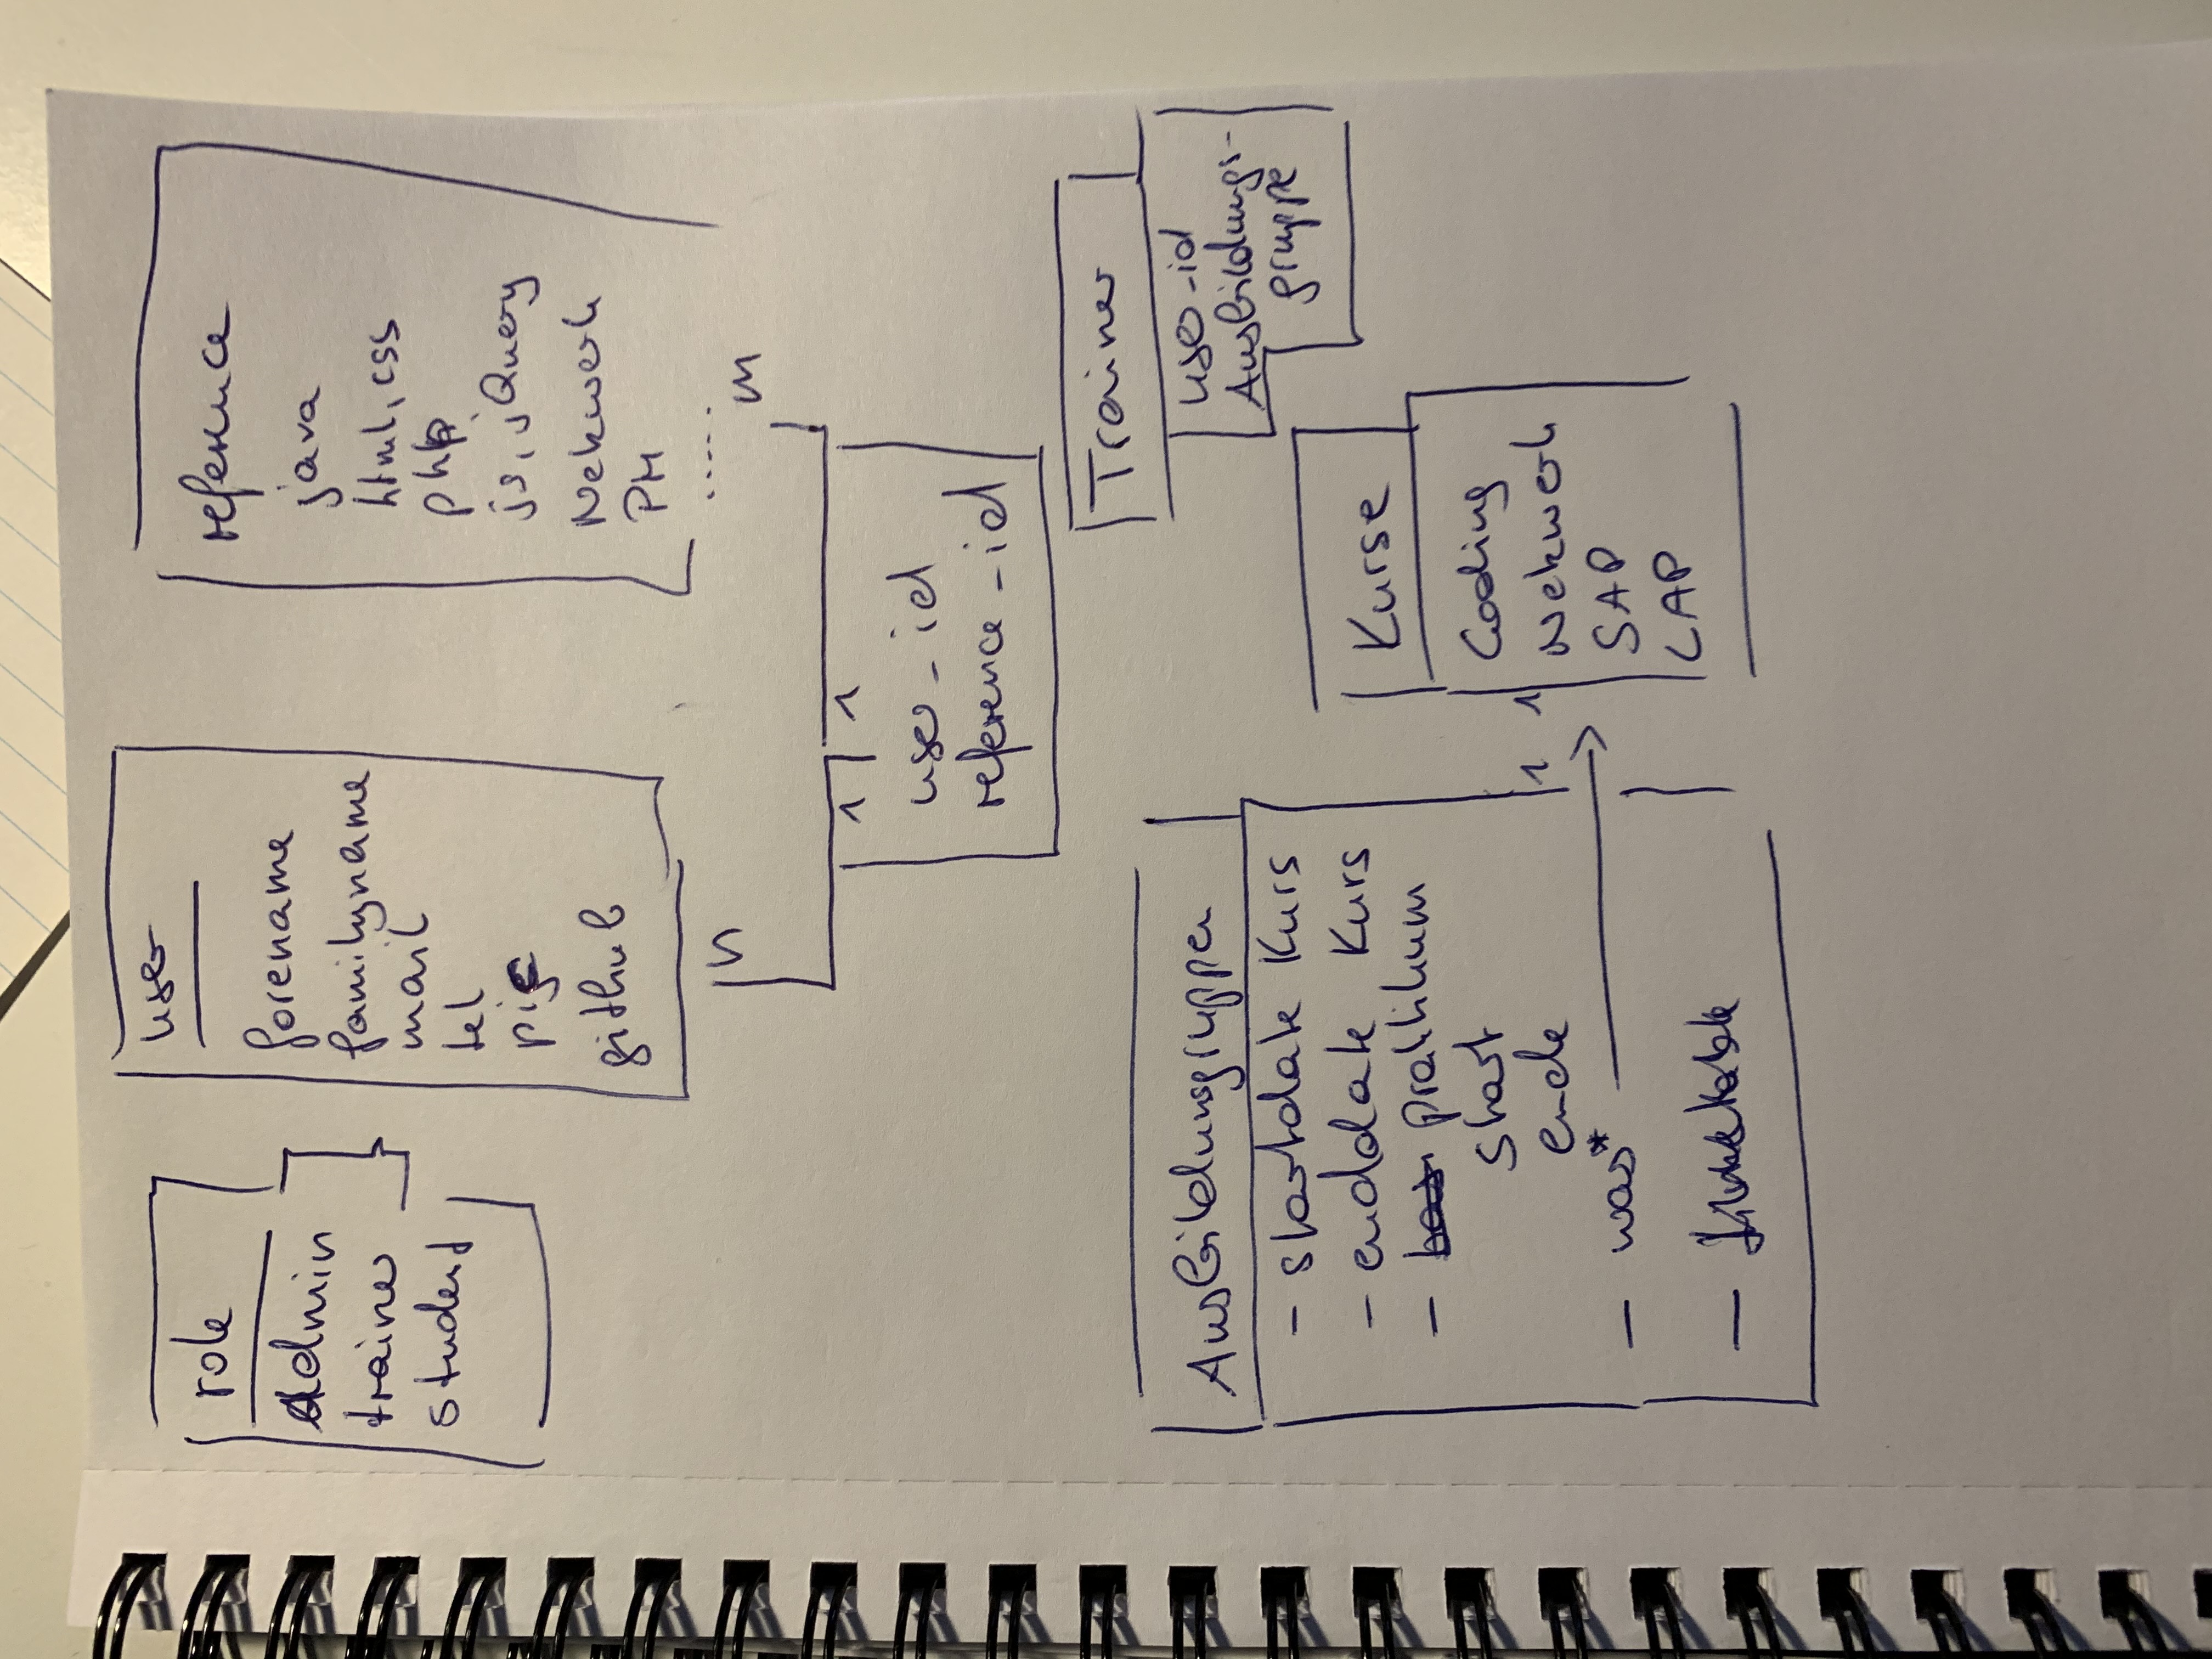 role
Admin
trainer
student
user
forename
familyname
mail
tel
pic
github
reference
java
html, css
php
js, jQuery
Netzwerk
PM
.....
n
m
1 1
user_id
reference_id
Trainer
user_id
Ausbildungs-
gruppe
Ausbildunsgruppen
- startdate Kurs
- enddate Kurs
- praktikum
start
ende
- was*
-
1 1
Kurse
Coding
Netzwerk
SAP
LAP